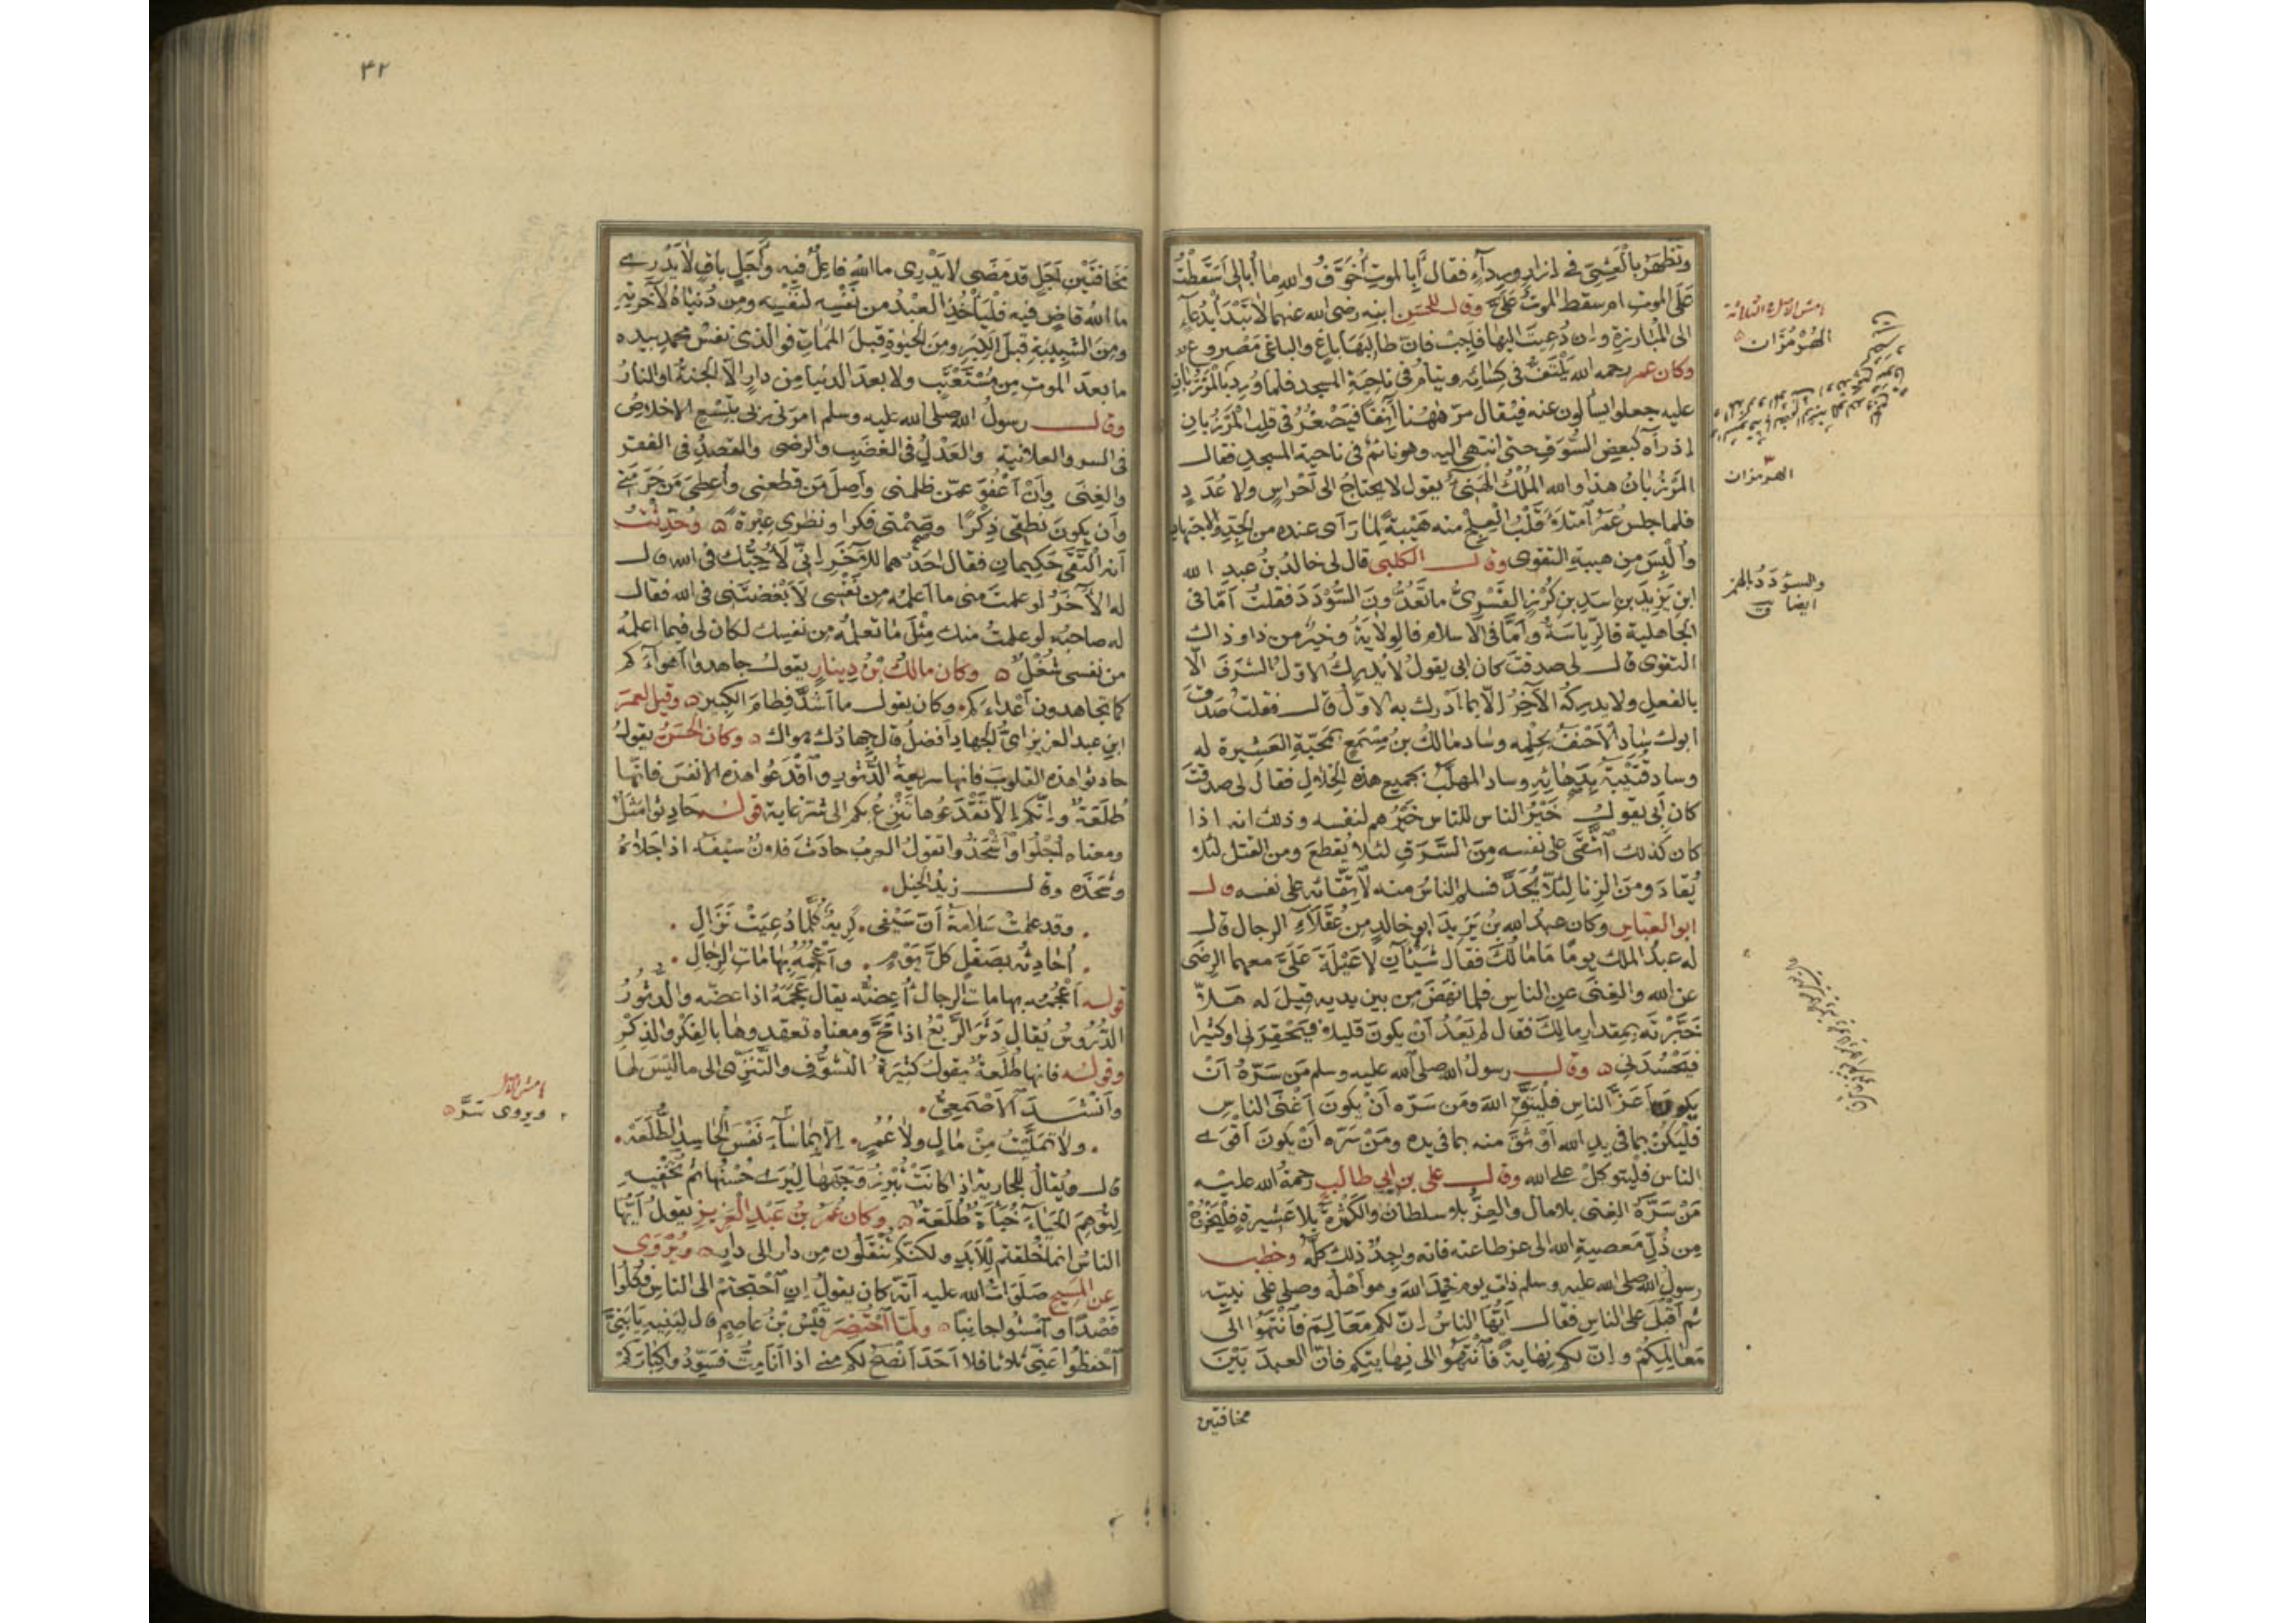 وتظهر بالعشي في إزار ورداء فقال أبالموت أخوف والله ما أبالي أسقطت
على الموت ام سقط الموت علي وقال للحسن ابنه رضي الله عنهما لا تبدأ بدعاء
الى المبارزة وان دعيت اليها فاجب فان طالبها باغ والباغي مصروع
وكان عمر رحمه الله يلتف في كسائه وينام في ناحية المسجد فلما ورد بالمرزبان
عليه جعلوا يسألون عنه فيقال مر ههنا آنفا فيصغر في قلب المرزبان
اذ رآه كبعض السوق حتى انتهى اليه وهو نائم في ناحية المسجد فقال
المرزبان هذا والله الملك الهنيء يقول لا يحتاج الى احراس ولا عدد
فلما جلس عمر امتلأ قلب العلج منه هيبة لما رأى عنده من الجد والاجتهاد
وألبس من هيبة التقوى وقال الكلبي قال لي خالد بن عبد الله
ابن يزيد بن اسد بن كرز القسري ما تعدون السؤدد فقلت أما في
الجاهلية فالرياسة وأما في الاسلام فالولاية وخير من ذا وذاك
التقوى قال لي صدقت كان ابي يقول لا يدرك الاول الشرف الا
بالفعل ولا يدركه الآخر الا بما أدرك به الاول قال فقلت صدق
ابوك ساد الأحنف بحلمه وساد مالك بن مسمع بمحبة العشيرة له
وساد قتيبة بدهائه وساد المهلب بجميع هذه الخلال فقال لي صدقت
كان أبي يقول خير الناس للناس خيرهم لنفسه وذلك انه اذا
كان كذلك اتقى على نفسه من السرق لئلا يقطع ومن القتل لئلا
يقاد ومن الزنا لئلا يحد فسلم الناس منه لاتقائه على نفسه قال
ابو العباس وكان عبد الله بن يزيد ابو خالد من عقلاء الرجال قال
له عبد الملك يوما ما مالك فقال شيئان لا عيلة علي معهما الرضى
عن الله والغنى عن الناس فلما نهض من بين يديه قيل له هلا
خبرته بمقدار مالك فقال لم يعد أن يكون قليلا فيحقرني او كثيرا
فيحسدني وقال رسول الله صلى الله عليه وسلم من سره ان
يكون أعز الناس فليتق الله ومن سره أن يكون أغنى الناس
فليكن بما في يد الله أوثق منه بما في يده ومن سره أن يكون أقوى
الناس فليتوكل على الله وقال علي بن ابي طالب رحمة الله عليه
من سره الغنى بلا مال والعز بلا سلطان والكثرة بلا عشيرة فليخرج
من ذل معصية الله الى عز طاعته فانه واجد ذلك كله وخطب
رسول الله صلى الله عليه وسلم ذات يوم فحمد الله بما هو أهله وصلى على نبيه
ثم أقبل على الناس فقال أيها الناس ان لكم معالم فانتهوا الى
معالمكم وان لكم نهاية فانتهوا الى نهايتكم فان العبد بين
مخافتين
الهرمزان
الهرمزان
والسؤدد بالهمز
ايضا
٤٢
مخافتين أجل قد مضى لا يدري ما الله فاعل فيه وأجل باق لا يدري
ما الله قاض فيه فليأخذ العبد من نفسه لنفسه ومن دنياه لآخرته
ومن الشبيبة قبل الكبر ومن الحيوة قبل الممات فوالذي نفس محمد بيده
ما بعد الموت من مستعتب ولا بعد الدنيا من دار الا الجنة او النار
وقال رسول الله صلى الله عليه وسلم امرني ربي بتسع الاخلاص
في السر والعلانية والعدل في الغضب والرضى والقصد في الفقر
والغنى وأن أعفو عمن ظلمني وأصل من قطعني وأعطي من حرمني
وأن يكون نطقي ذكرا وصمتي فكرا ونظري عبرة وحدثت
أنه التقى حكيمان فقال احدهما للآخر اني لأحبك في الله قال
له الآخر لو علمت مني ما أعلمه من نفسي لأبغضتني في الله فقال
له صاحبه لو علمت منك مثل ما تعلمه من نفسك لكان لي فيما اعلمه
من نفسي شغل وكان مالك بن دينار يقول جاهدوا أهواءكم
كما تجاهدون أعداءكم وكان يقول ما أشد فطام الكبير وقيل لعمر
ابن عبد العزيز اي الجهاد أفضل قال جهادك هواك وكان الحسن يقول
حادثوا هذه القلوب فانها سريعة الدثور واقدعوا هذه الانفس فانها
طلعة وانكم الا تقدعوها تنزع بكم الى شر غاية قوله حادثوا مثل
ومعناه اجلوا واشحذوا تقول العرب حادث فلان سيفه اذا جلاه
وشحذه وقال زيد الخيل
وقد علمت سلامة أن سيفي كريه كلما دعيت نزال
أحادثه بصقل كل يوم وأعجمه بهامات الرجال
قوله أعجمه بهامات الرجال أعضه يقال عجمه اذا عضه والدثور
الدروس يقال دثر الربع اذا امحى ومعناه تعهدوها بالفكر والذكر
وقوله فانها طلعة يقول كثيرة التشوف والتنزي الى ما ليس لها
وأنشد الأصمعي
ولا تمليت من مال ولا عمر الا بما ساء نفس الحاسد الطلعه
قال ويقال للجارية اذا كانت تبرز وجهها ليرى حسنها ثم تخفيه
لتوهم الحياء خبأة طلعة وكان عمر بن عبد العزيز يقول أيها
الناس انما خلقتم للأبد ولكنكم تنقلون من دار الى دار ويروى
عن المسيح صلوات الله عليه أنه كان يقول ان احتجتم الى الناس فكلوا
قصدا وامشوا جانبا ولما احتضر قيس بن عاصم قال لبنيه يا بني
احفظوا عني ثلاثا فلا أحد أنصح لكم مني اذا أنا مت فسودوا كباركم
ويروى سر